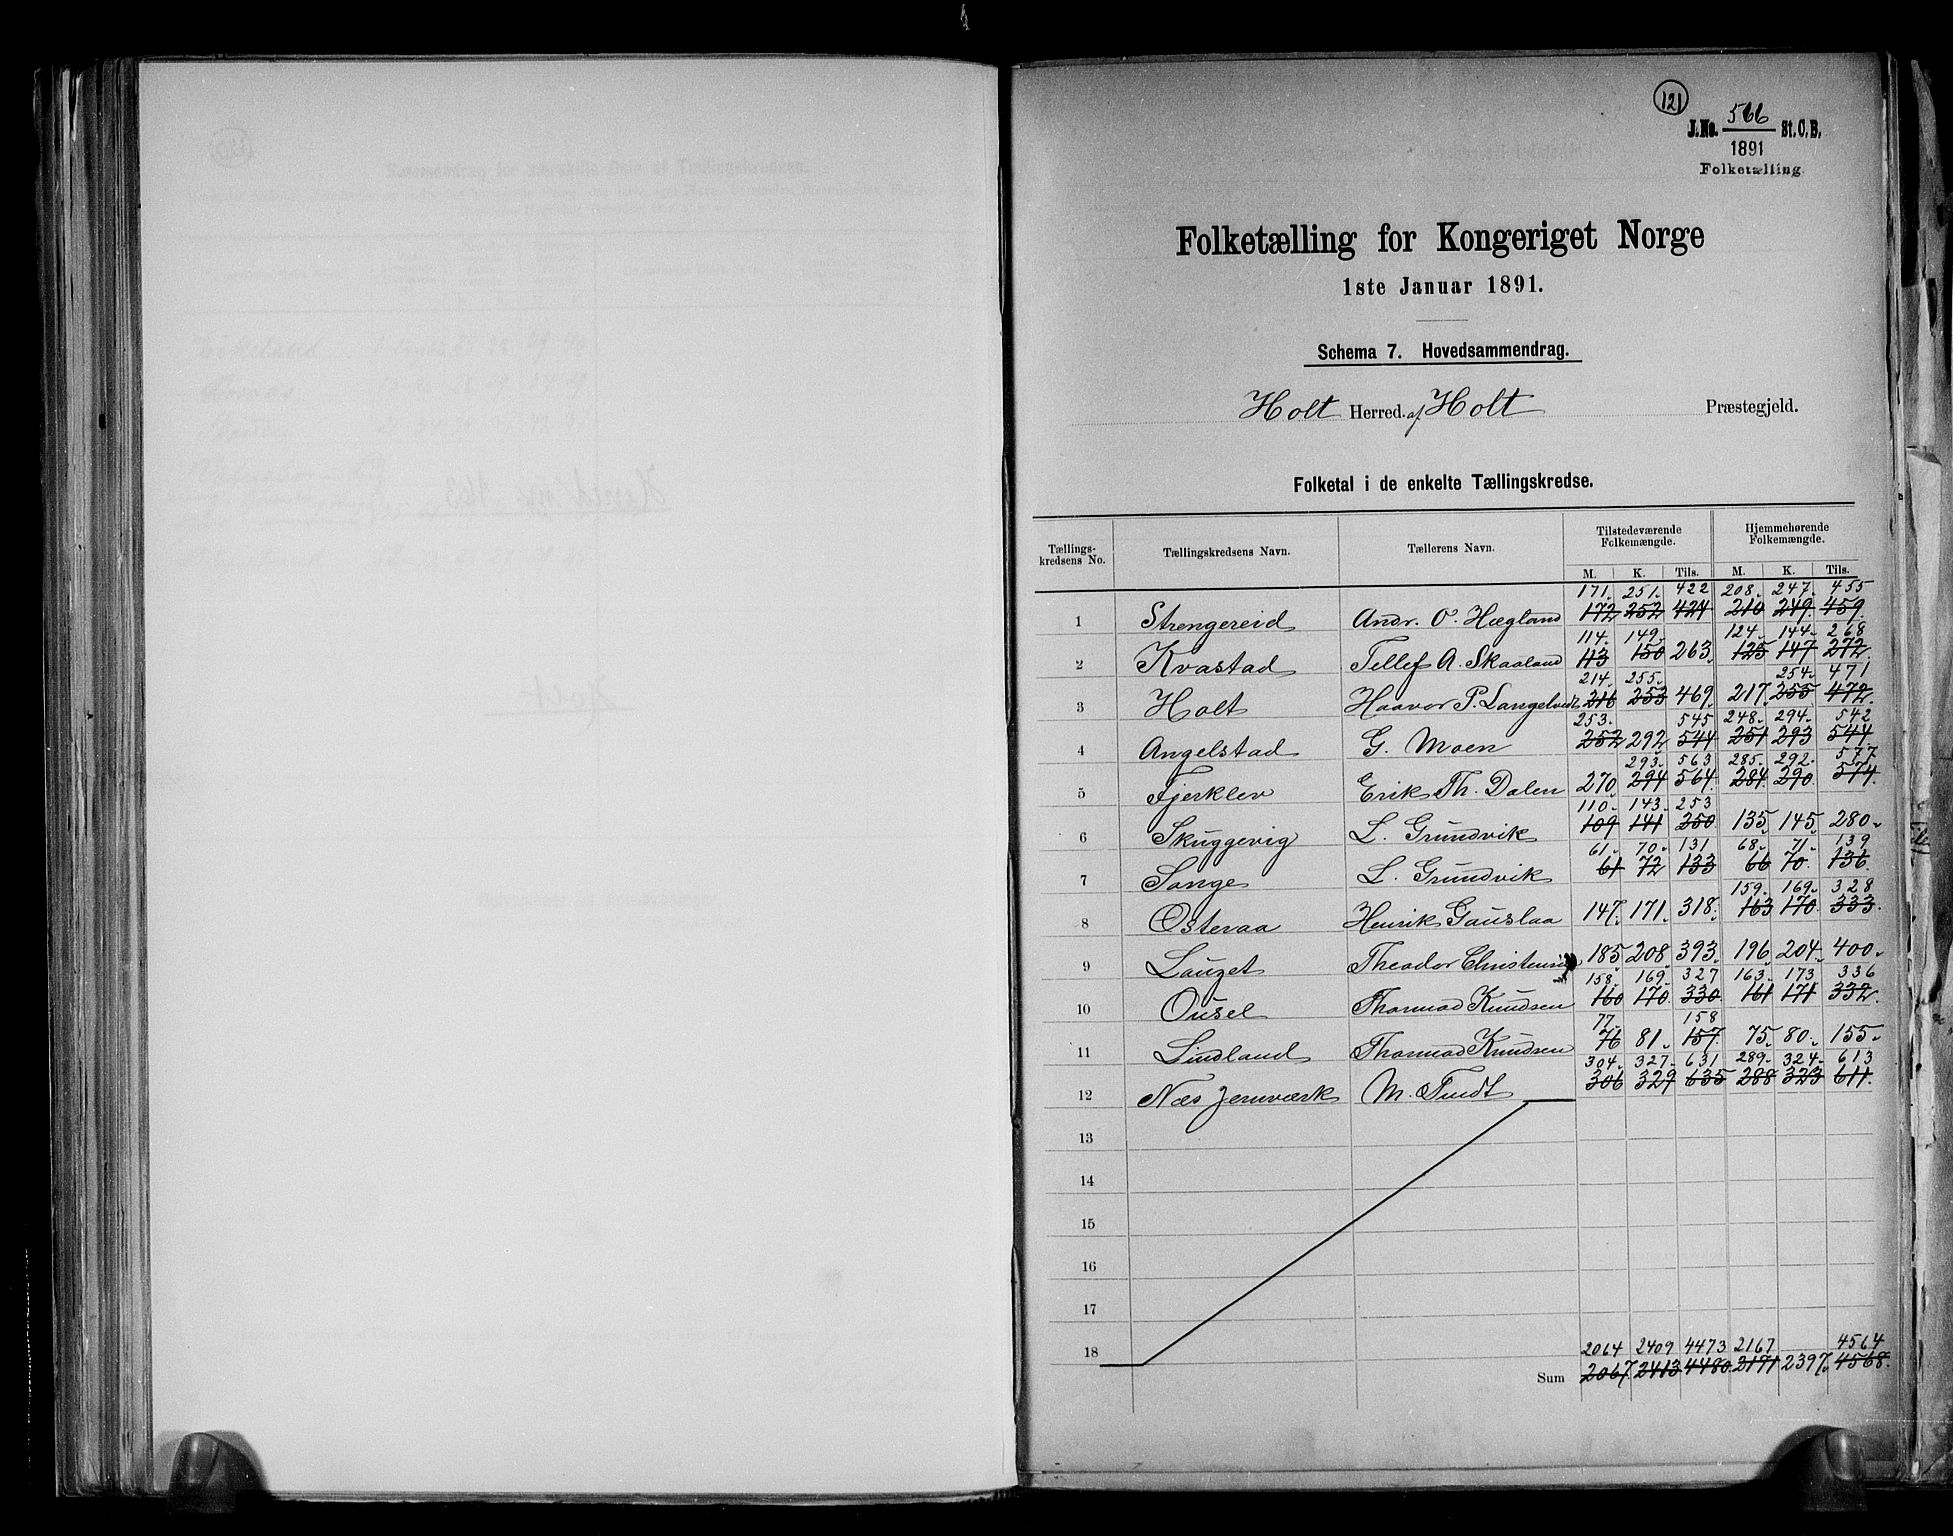 121
J.No. 566 St.C.B.
1891
Folketælling
Folketælling for Kongeriget Norge
1ste Januar 1891.
Schema 7. Hovedsammendrag.
Holt Herred af Holt Præstegjeld.
Folketal i de enkelte Tællingskredse.
Tællingskredsens No. Tællingskredsens Navn. Tællerens Navn. Tilstedeværende Folkemængde. Hjemmehørende Folkemængde.
M. K. Tils. M. K. Tils.
171. 251. 422 208. 247. 455
1 Strengereid Andr. O. Hægland 172 252 424 210 249. 459.
114. 149. 124. 144. 268
2 Kvastad Tellef A. Skaaland 113 150 263. 125 147 272.
214. 255. 254. 471
3 Holt Haavor P. Langelvedt 216 253 469. 217. 255 472.
253. 545 248. 294. 542
4 Angelstad G. Moen 252 292 544 251 293 544.
293. 563 285. 292. 577
5 Fjerklev Erik Th. Dalen 270. 294 564. 284. 290. 574.
110. 143. 253
6 Skuggevig L. Grundvik 109 141 250 135. 145. 280.
61. 70. 131 68. 71. 139
7 Songe L. Grundvik 61 72 133 66 70. 136.
159. 169. 328
8 Osteraa Henrik Gauslaa 147. 171. 318. 163 170. 333.
9 Lauget Theodor 185. 208. 393. 196. 204. 400.
158. 169. 327 163. 173 336
10 Ousel Thormod Knudsen 160 170. 330. 161 171 332.
77. 158
11 Lindland Thormod Knudsen 76 81. 157. 75. 80. 155.
304. 327. 631 289. 324. 613
12 Næs Jernværk M. 306 329 635 288 323 611.
13
14
15
16
17
18
2064 2409 4473 2167 4564
Sum 2067. 2413 4480. 2171 2397. 4568.